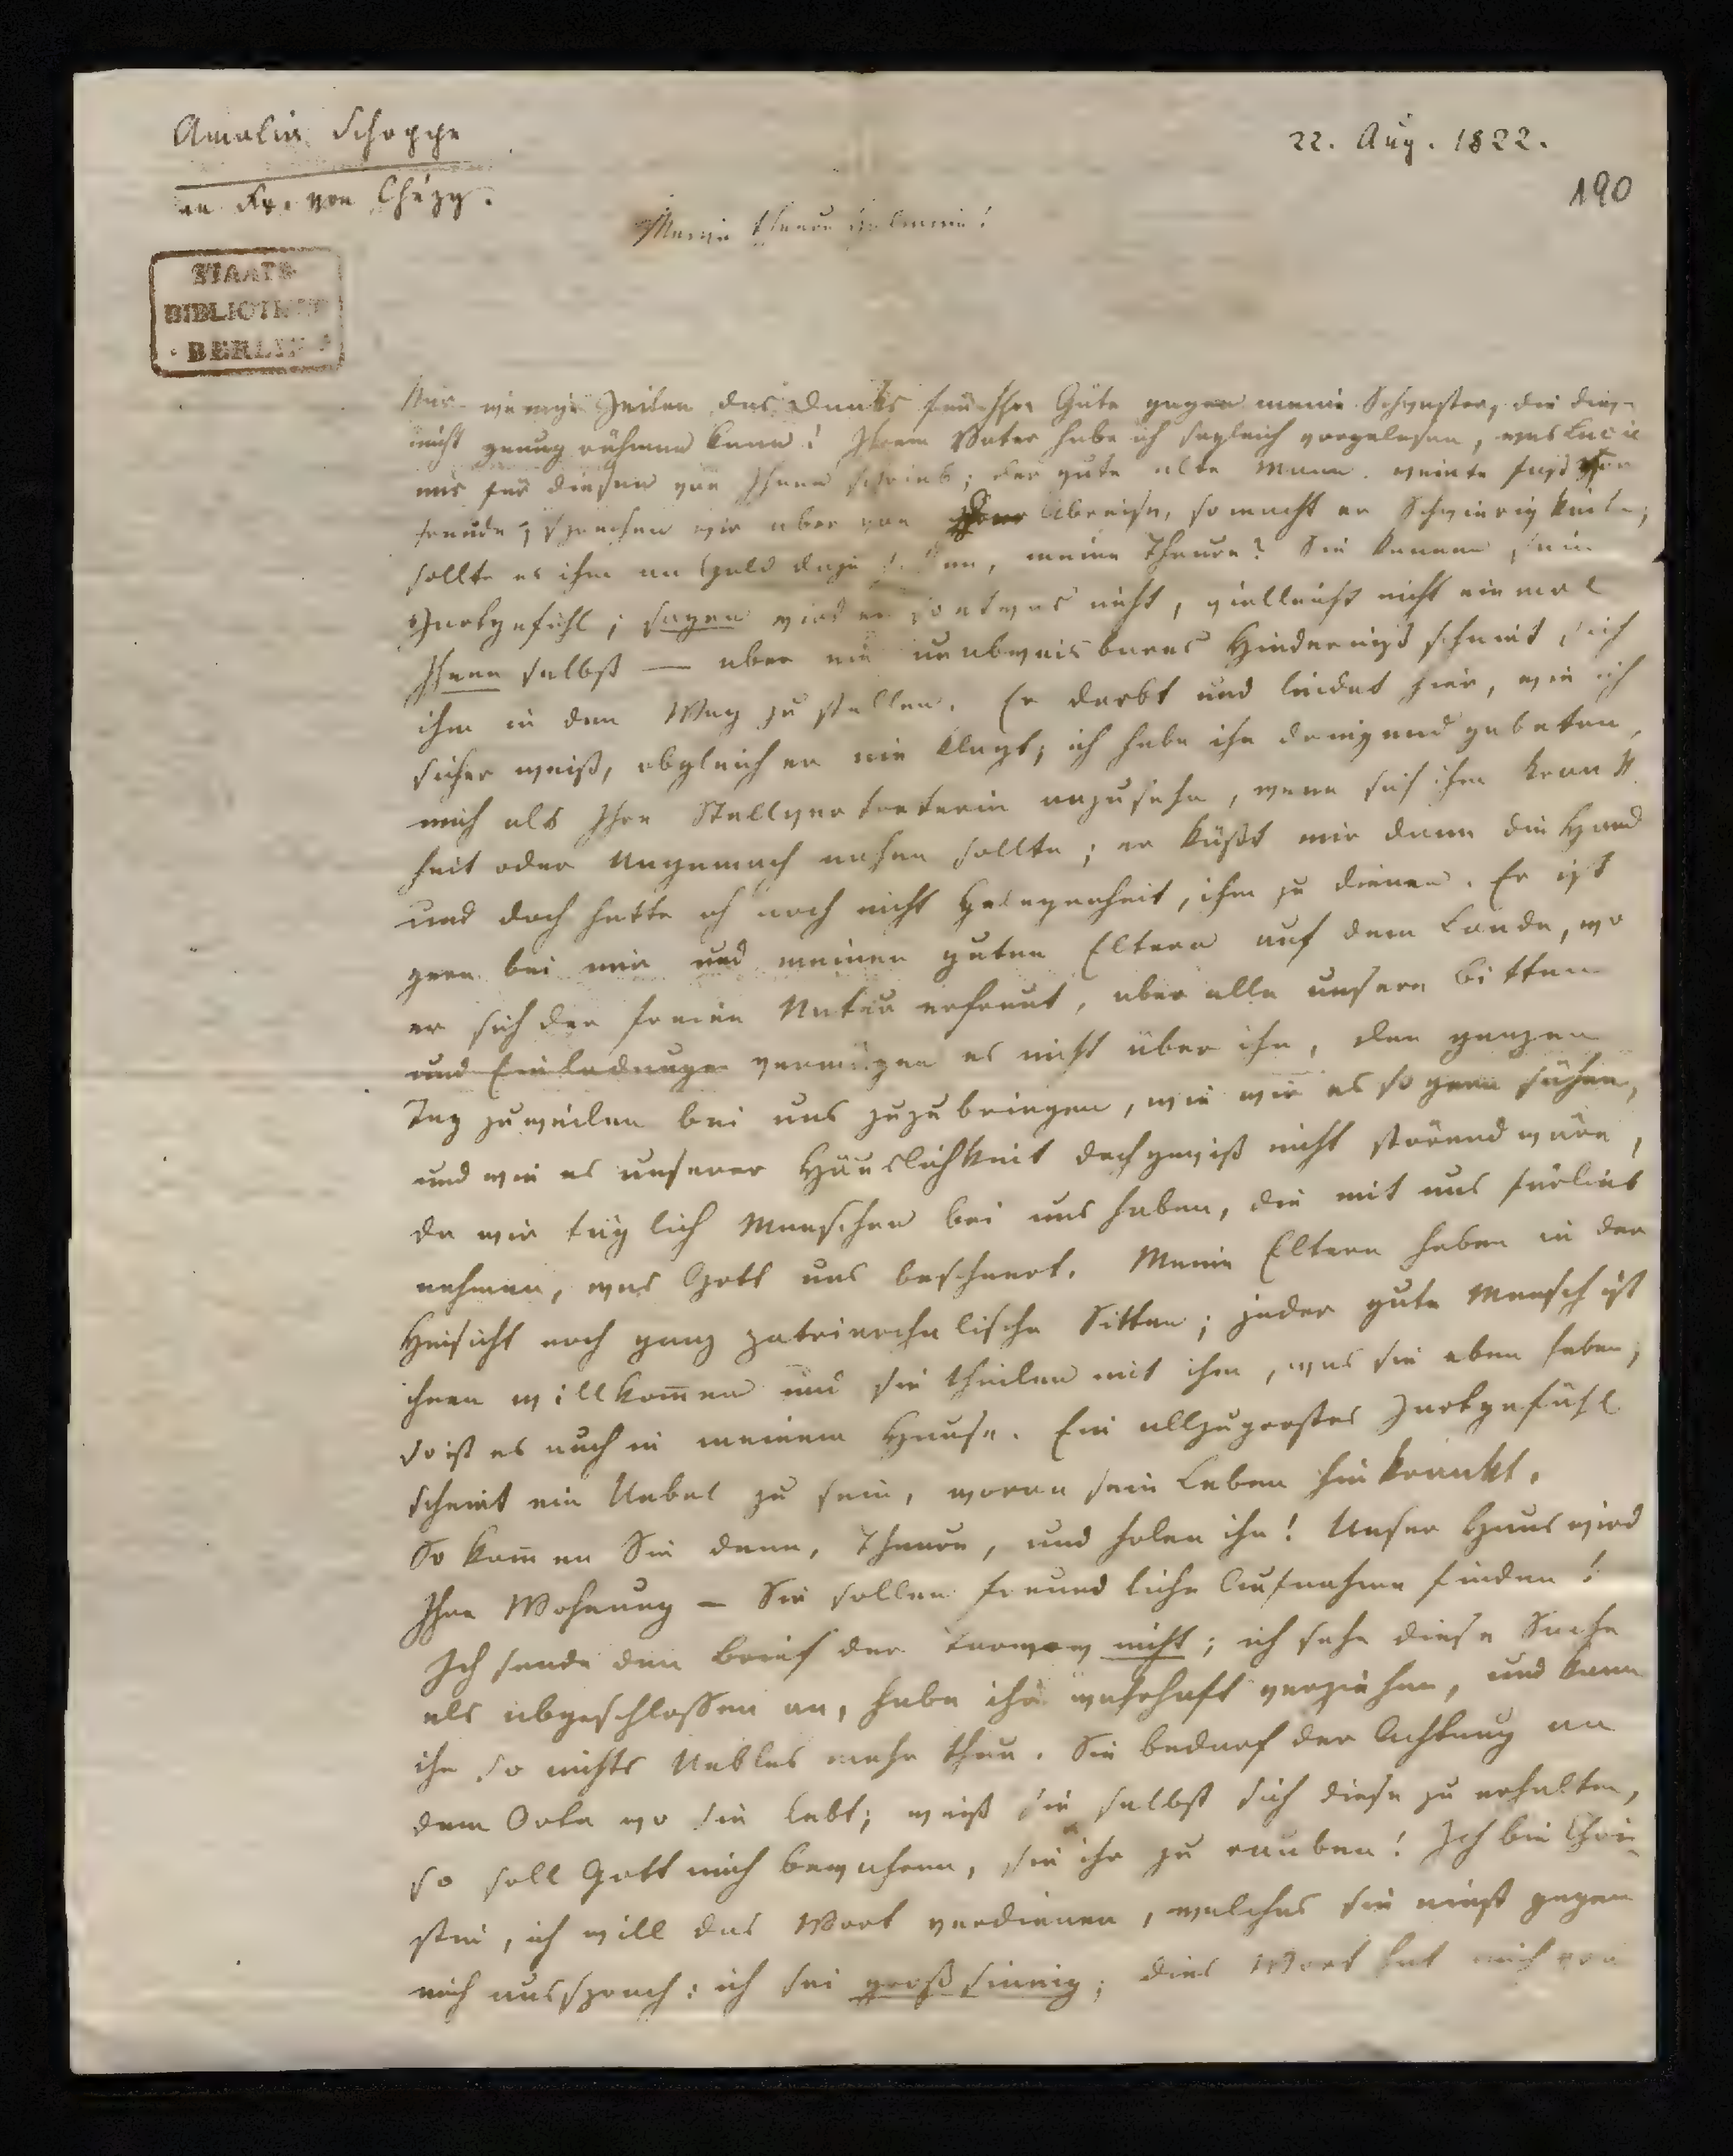 Amalia Schoppe
an Fr. von Chézy.
22. Aug. 1822.
190
STAATS
BIBLIOTHEK
BERLIN
Meine theure Helmina!
Nur wenige Zeilen des Danks für Ihre Güte gegen meine Schwester, die diese
nicht genug rühmen kann! Ihrem Vater habe ich sogleich vorgelesen, was Lucie
mir für diesen von Ihnen schrieb; der gute alte Mann weinte fast vor
Freude; sprechen wir aber von Abreise, so macht er Schwierigkeiten;
sollte es ihm an Geld dazu fehlen, meine Theure? Sie kennen sein
Zartgefühl; sagen wird er so etwas nicht, vielleicht nicht einmal
Ihnen selbst — aber ein unabweisbares Hinderniß scheint sich
ihm in den Weg zu stellen. Er darbt und leidet hier, wie ich
sicher weiß, obgleich er nie klagt; ich habe ihn dringend gebeten,
mich als Ihre Stellvertreterin anzusehn, wenn sich ihm Krank
heit oder Ungemach nahen sollte; er küßt mir dann die Hand
und doch hatte ich noch nicht Gelegenheit, ihm zu dienen. Er ist
gern bei mir und meinen guten Eltern auf dem Lande, wo
er sich der freien Natur erfreut, aber alle unsere Bitten
und Einladungen vermögen es nicht über ihn, den ganzen
Tag zuweilen bei uns zuzubringen, wie wir es so gern sähen,
und wie es unserer Häuslichkeit doch gewiß nicht störend wäre,
da wir täglich Menschen bei uns haben, die mit uns fürlieb
nehmen, was Gott uns bescheert. Meine Eltern haben in der
Hinsicht noch ganz patriarchalische Sitten; jeder gute Mensch ist
ihnen willkom̅en und sie theilen mit ihm, was sie eben haben;
so ist es auch in meinem Hause. Ein allzugroßes Zartgefühl
scheint ein Uebel zu sein, woran sein Leben hinkrankt.
So kom̅en Sie denn, Theure, und holen ihn! Unser Haus wird
Ihre Wohnung – Sie sollen freundliche Aufnahme finden!
Ich sende den Brief der Tarnow nicht; ich sehe diese Sache
als abgeschlossen an, habe ihr wahrhaft verziehen, und kann
ihr so nichts Uebles mehr thun. Sie bedarf der Achtung an
dem Orte wo sie lebt; weiß sie selbst sich diese zu erhalten,
so soll Gott mich bewahren, sie ihr zu rauben! Ich bin Chri-
stin, ich will das Wort verdienen, welches sie einst gegen
mich aussprach: ich sei großsinnig; dies Wort hat mich vor